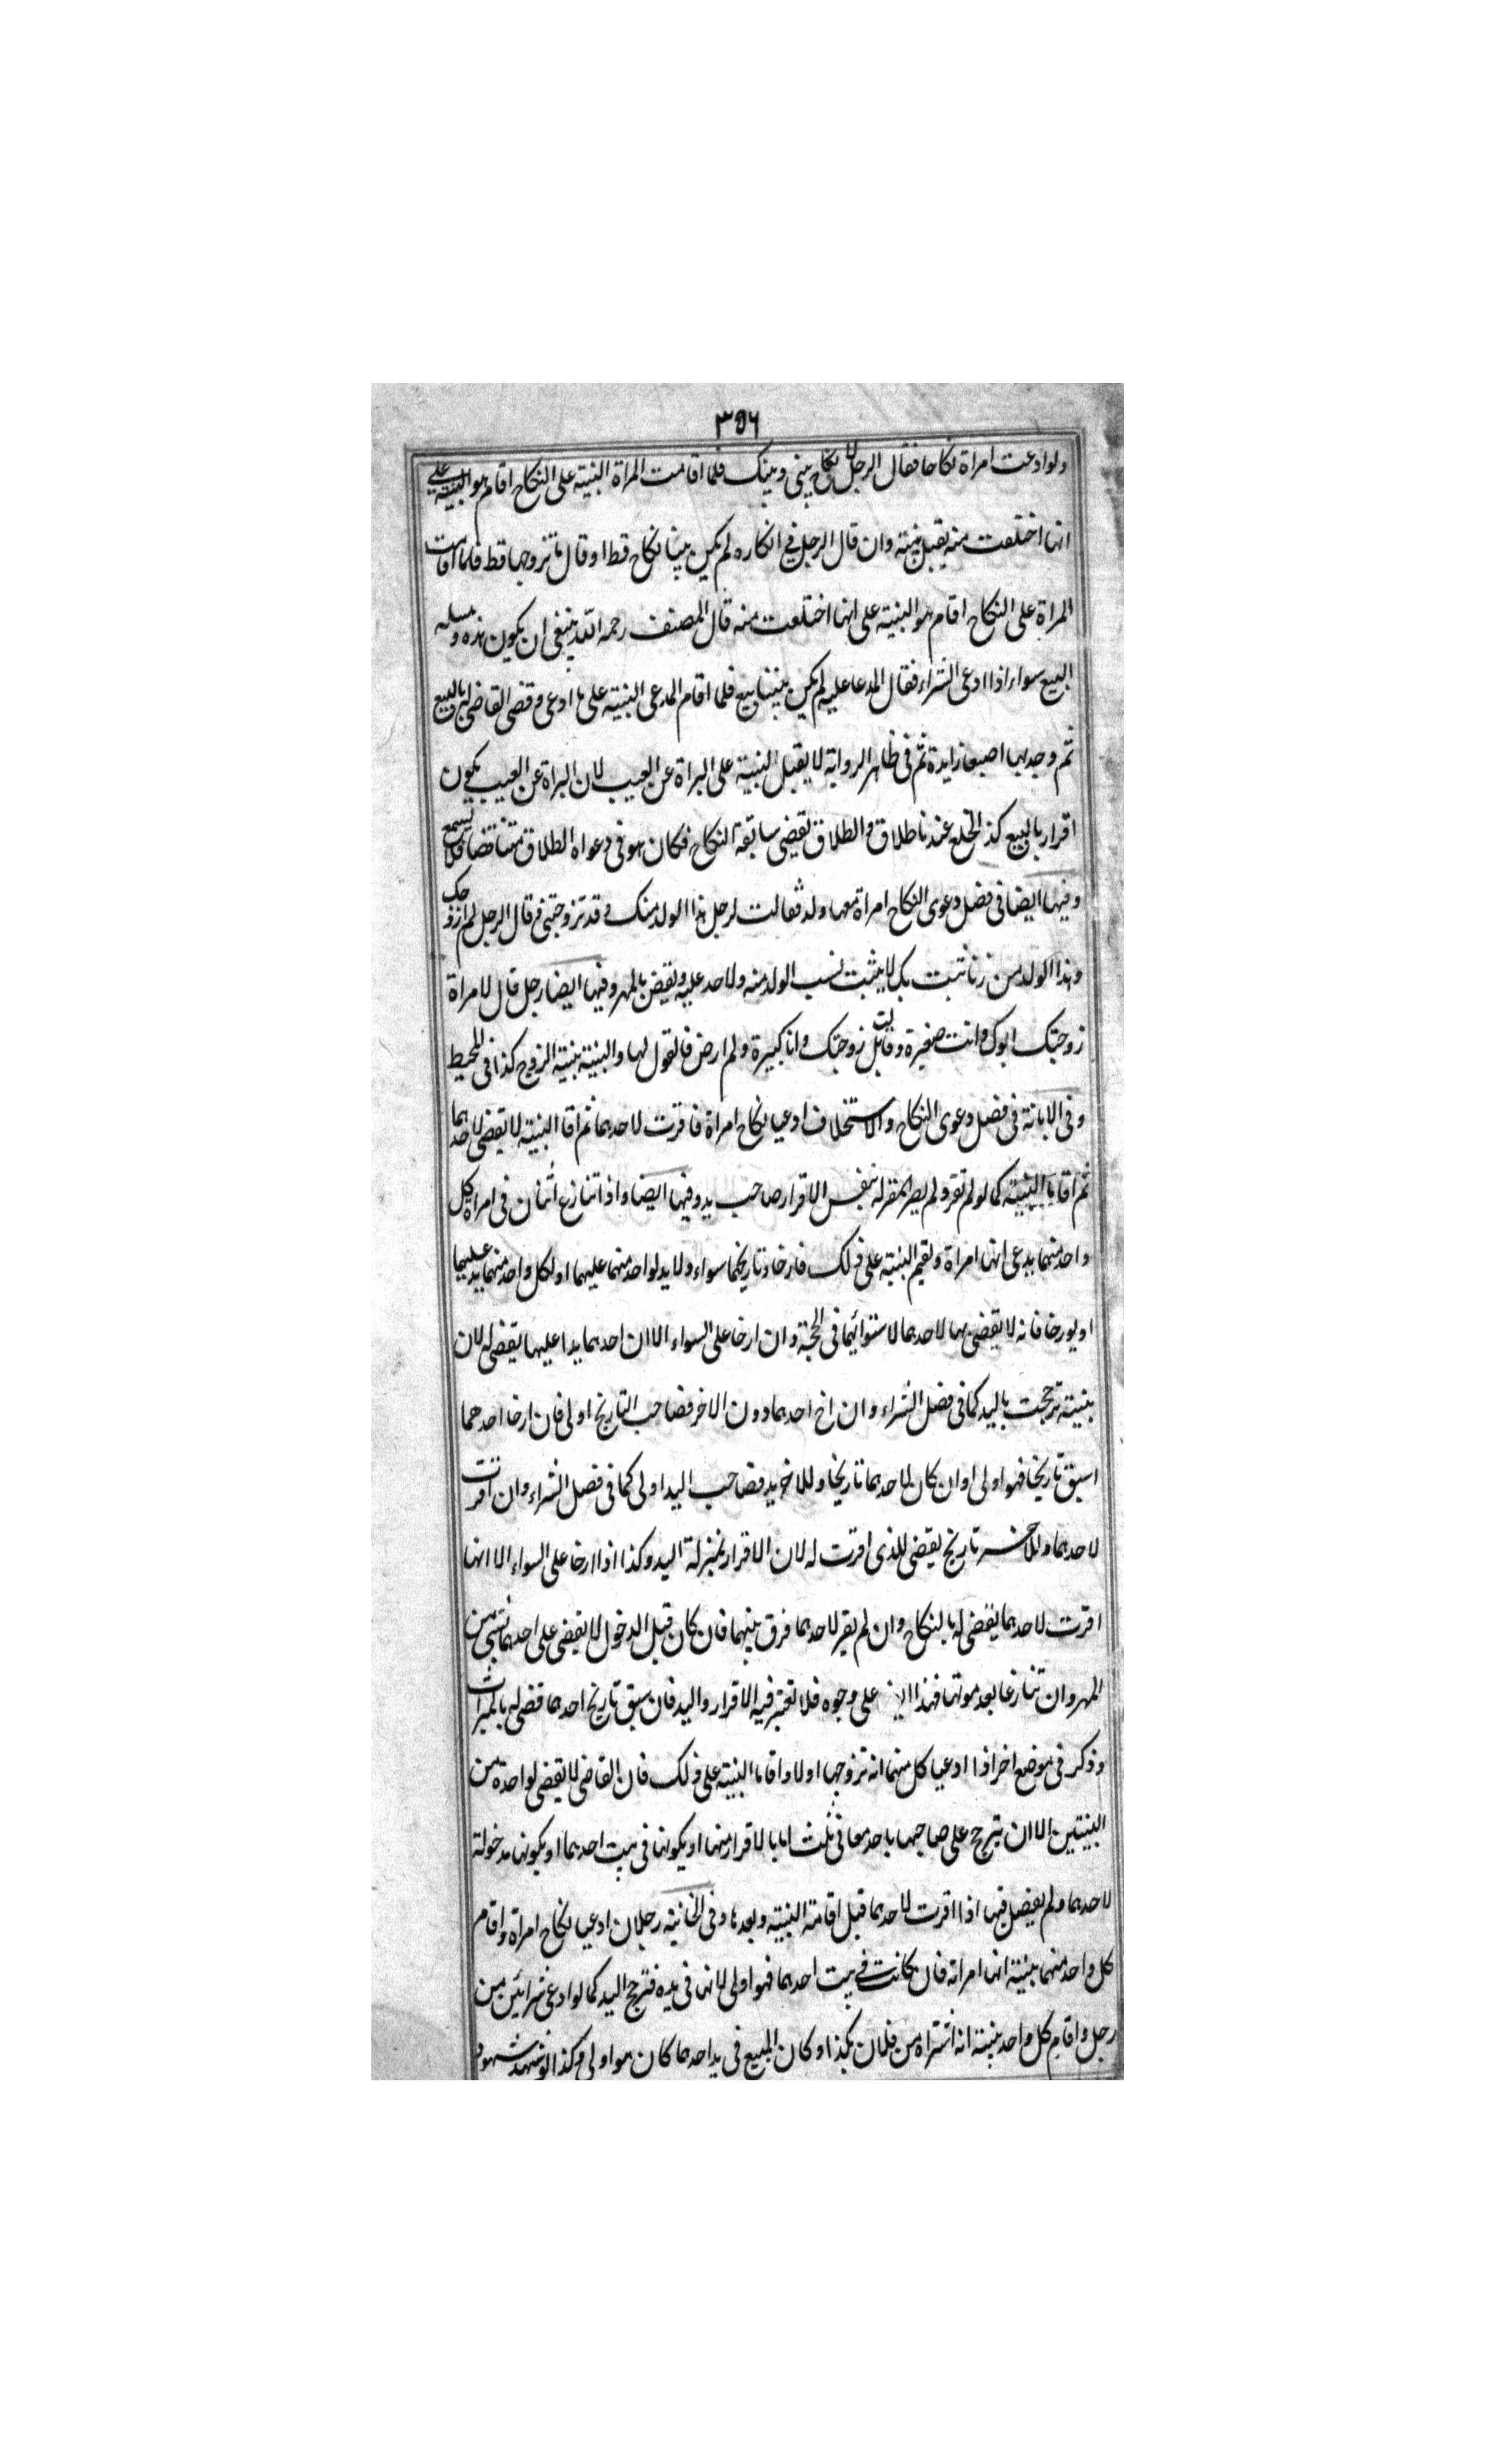 ٣٥٦
ولو ادعت امراة نكاحا فقال الرجل لا نكاح بينى وبينك فلما اقامت المراة البينة على النكاح اقام هو البينة على
انها اختلعت منه يقبل بينته وان قال الرجل فى انكاره لم يكن بيننا نكاح قط او قال ما تزوجها قط فلما اقامت
المراة على النكاح اقام هو البينة على انها اختلعت منه قال المصنف رحمه الله ينبغى ان يكون هذه ومسله
البيع سواء اذا ادعى الشراء فقال المدعا عليه لم يكن بيننا بيع فلما اقام المدعى البينة على ما ادعى وقضى القاضى بالبيع
ثم وجد بها اصبعا زايدة ثم فى ظاهر الرواية لا يقبل البينة على البراة عن العيب لان البراة عن العيب يكون
اقرار بالبيع كذ الخلع عندنا طلاق والطلاق يقضى سابقة النكاح فكان هو فى دعواه الطلاق متناقضا فلا يسمع
وفيها ايضا فى فصل دعوى النكاح امراة معها ولد فقالت لرجل هذا الولد منك وقد تزوجتنى فقال الرجل لم ازوجك
وهذا الولد من زنا بك لا يثبت نسب الولد منه ولا حد عليه ويقضى بالمهر وفيها ايضا رجل قال لامراة
زوجتك ابوك وانت صغيرة وقالت بل زوجتك وانا كبيرة ولم ارض فالقول لها والبينة بينة الزوج كذا فى المحيط
وفى الابانة فى فصل دعوى النكاح والاستحلاف ادعيا نكاح امراة فاقرت لاحدهما ثم اقاما البينة لا يقضى لاحدهما
ثم اقاما البينة كما لو لم تقر ولم يصر المقر له بنفس الاقرار صاحب يد وفيها ايضا واذا تنازع اثنان فى امراة كل
واحد منهما يدعى انها امراة ويقيم البينة على ذلك فارخا وتاريخهما سواء ولا يد لواحد منهما عليهما او لكل واحد منهما يد عليها
او يورخا فانه لا يقضى بها لاحدهما لاستوائهما فى الحجة وان ارخا على السواء الا ان احدهما يدا عليها يقضى له لان
بينته ترجحت باليد كما فى فصل الشراء وان ارخ احدهما دون الاخر فصاحب التاريخ اولى فان ارخا احدهما
اسبق تاريخا فهو اولى او ان كان لاحدهما تاريخا وللاخر يد فصاحب اليد اولى كما فى فصل الشراء وان اقرت
لاحدهما وللاخر تاريخ يقضى للذى اقرت له لان الاقرار بمنزلة اليد وكذا اذا ارخا على السواء الا انها
اقرت لاحدهما يقضى له بالنكاح وان لم يقر لاحدهما فرق بينهما فان كان قبل الدخول لا يقضى على احدهما بشى من
المهر وان تنازعا بعد موتها فهذا على وجوه فلا تعتبر فيه الاقرار واليد فان سبق تاريخ احدهما قضى له بالميراث
وذكر فى موضع اخر اذا ادعيا كل منهما انه تزوجها اولا واقاما البينة على ذلك فان القاضى لا يقضى لواحدة من
البينتين الا ان يترجح على صاحبها باحد معانى ثلث اما بالاقرار منها او يكونها فى بيت احدهما او يكونها مدخولة
لاحدهما ولم يفصل فيها اذا اقرت لاحدهما قبل اقامة البينة وبعدها وفى الخانية رجلان ادعيا نكاح امراة واقام
كل واحد منهما بينة انها امراته فان كانت فى بيت احدهما فهو اولى لانها فى يده فترجح اليد كما لو ادعى شرائين من
رجل واقام كل واحد بينة انه اشتراه من فلان بكذا وكان المبيع فى يد احدهما كان هو اولى وكذا لو شهد شهود